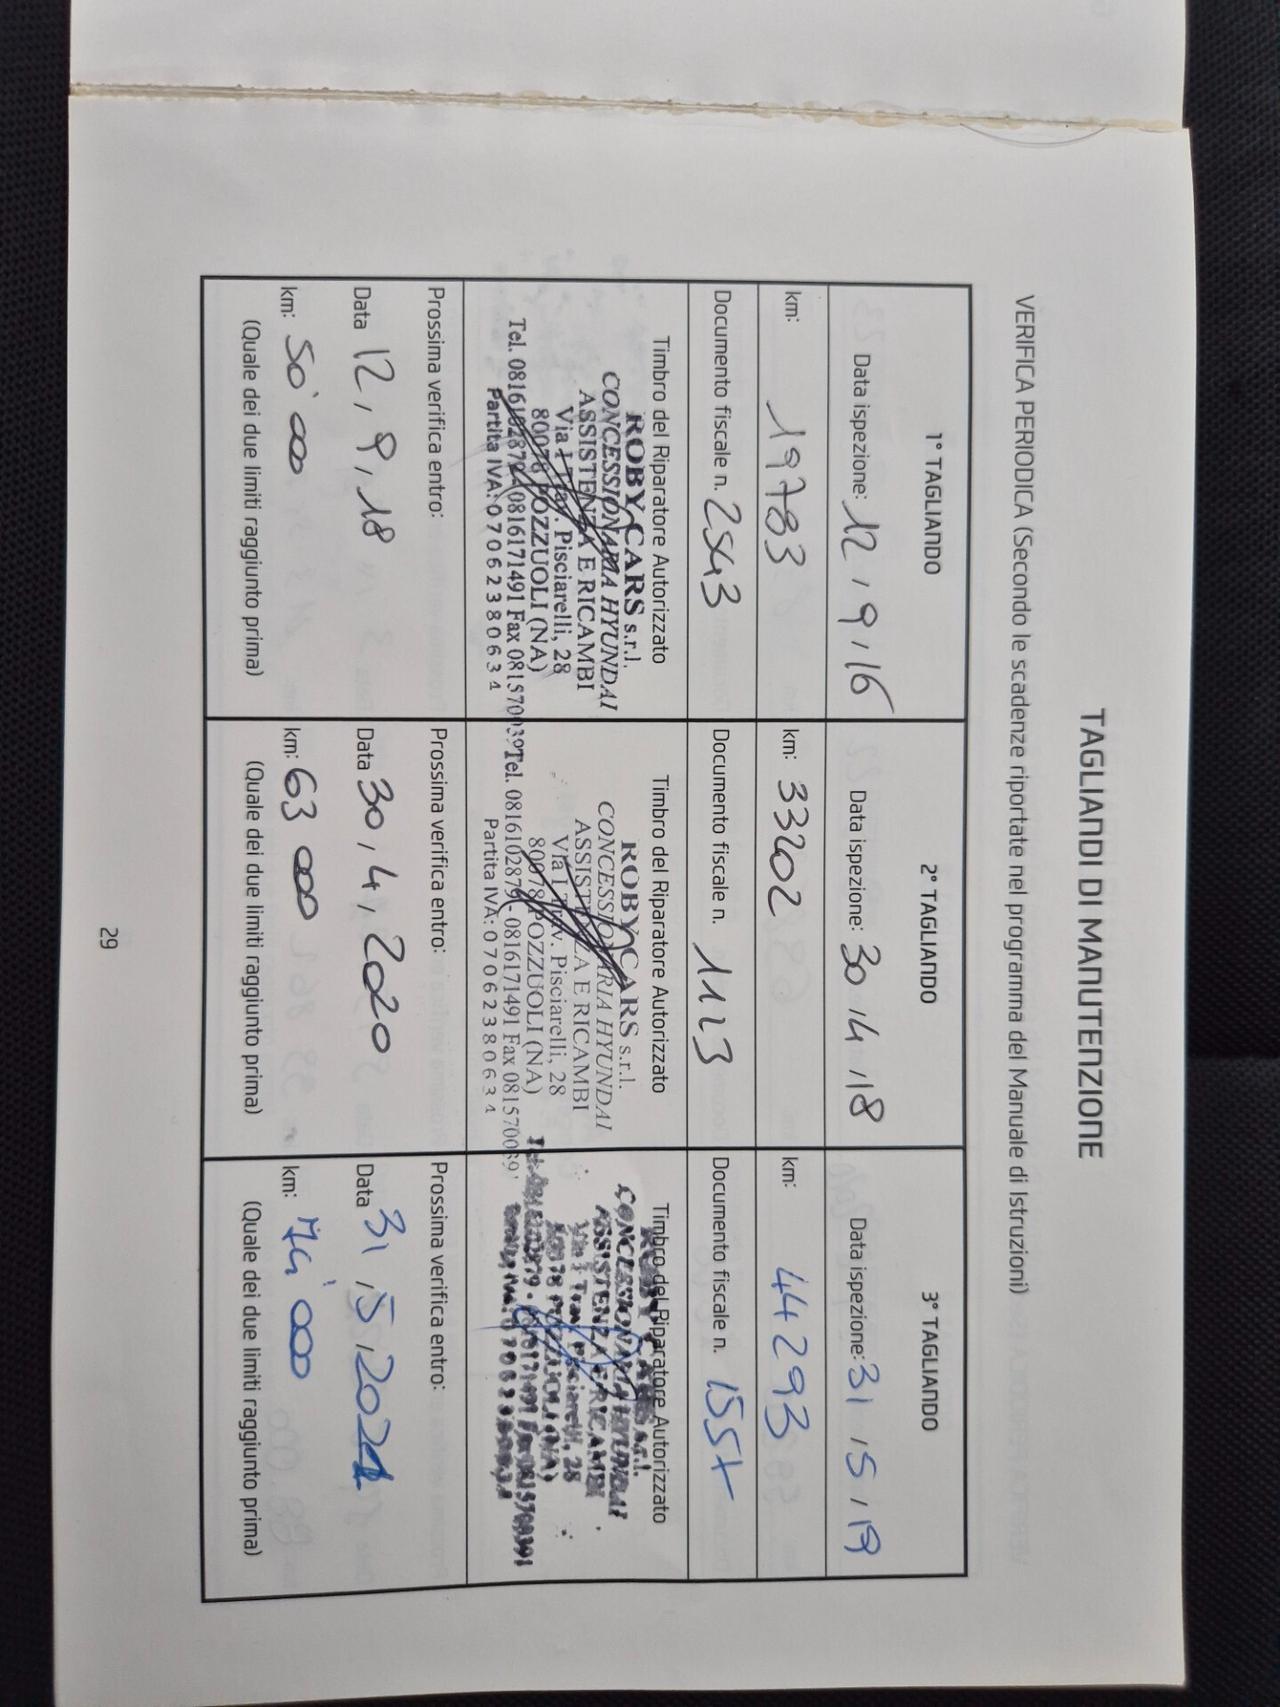 TAGLIANDI DI MANUTENZIONE
VERIFICA PERIODICA (Secondo le scadenze riportate nel programma del Manuale di Istruzioni)
1° TAGLIANDO
Data ispezione: 12, 9, 16
km: 19783
Documento fiscale n. 2543
Timbro del Riparatore Autorizzato
ROBY CARS s.r.l.
CONCESSIONARIA HYUNDAI
ASSISTENZA E RICAMBI
Via I Trav. Pisciarelli, 28
80078 POZZUOLI (NA)
Tel. 0816102879 - 0816171491 Fax 08157039
Partita IVA: 07062380634
Prossima verifica entro:
Data 12, 9, 18
km: 50'000
(Quale dei due limiti raggiunto prima)
2° TAGLIANDO
Data ispezione: 30, 4, 18
km: 33202
Documento fiscale n. 1123
Timbro del Riparatore Autorizzato
ROBY CARS s.r.l.
CONCESSIONARIA HYUNDAI
ASSISTENZA E RICAMBI
Via I Trav. Pisciarelli, 28
80078 POZZUOLI (NA)
Tel. 0816102879 - 0816171491 Fax 081570039
Partita IVA: 07062380634
Prossima verifica entro:
Data 30, 4, 2020
km: 63 000
(Quale dei due limiti raggiunto prima)
3° TAGLIANDO
Data ispezione: 31, 5, 19
km: 44293
Documento fiscale n.
Timbro del Riparatore Autorizzato
ROBY CARS s.r.l.
CONCESSIONARIA HYUNDAI
ASSISTENZA E RICAMBI
Via I Trav. Pisciarelli, 28
80078 POZZUOLI (NA)
Prossima verifica entro:
Data 31, 5, 2021
km: 74'000
(Quale dei due limiti raggiunto prima)
29